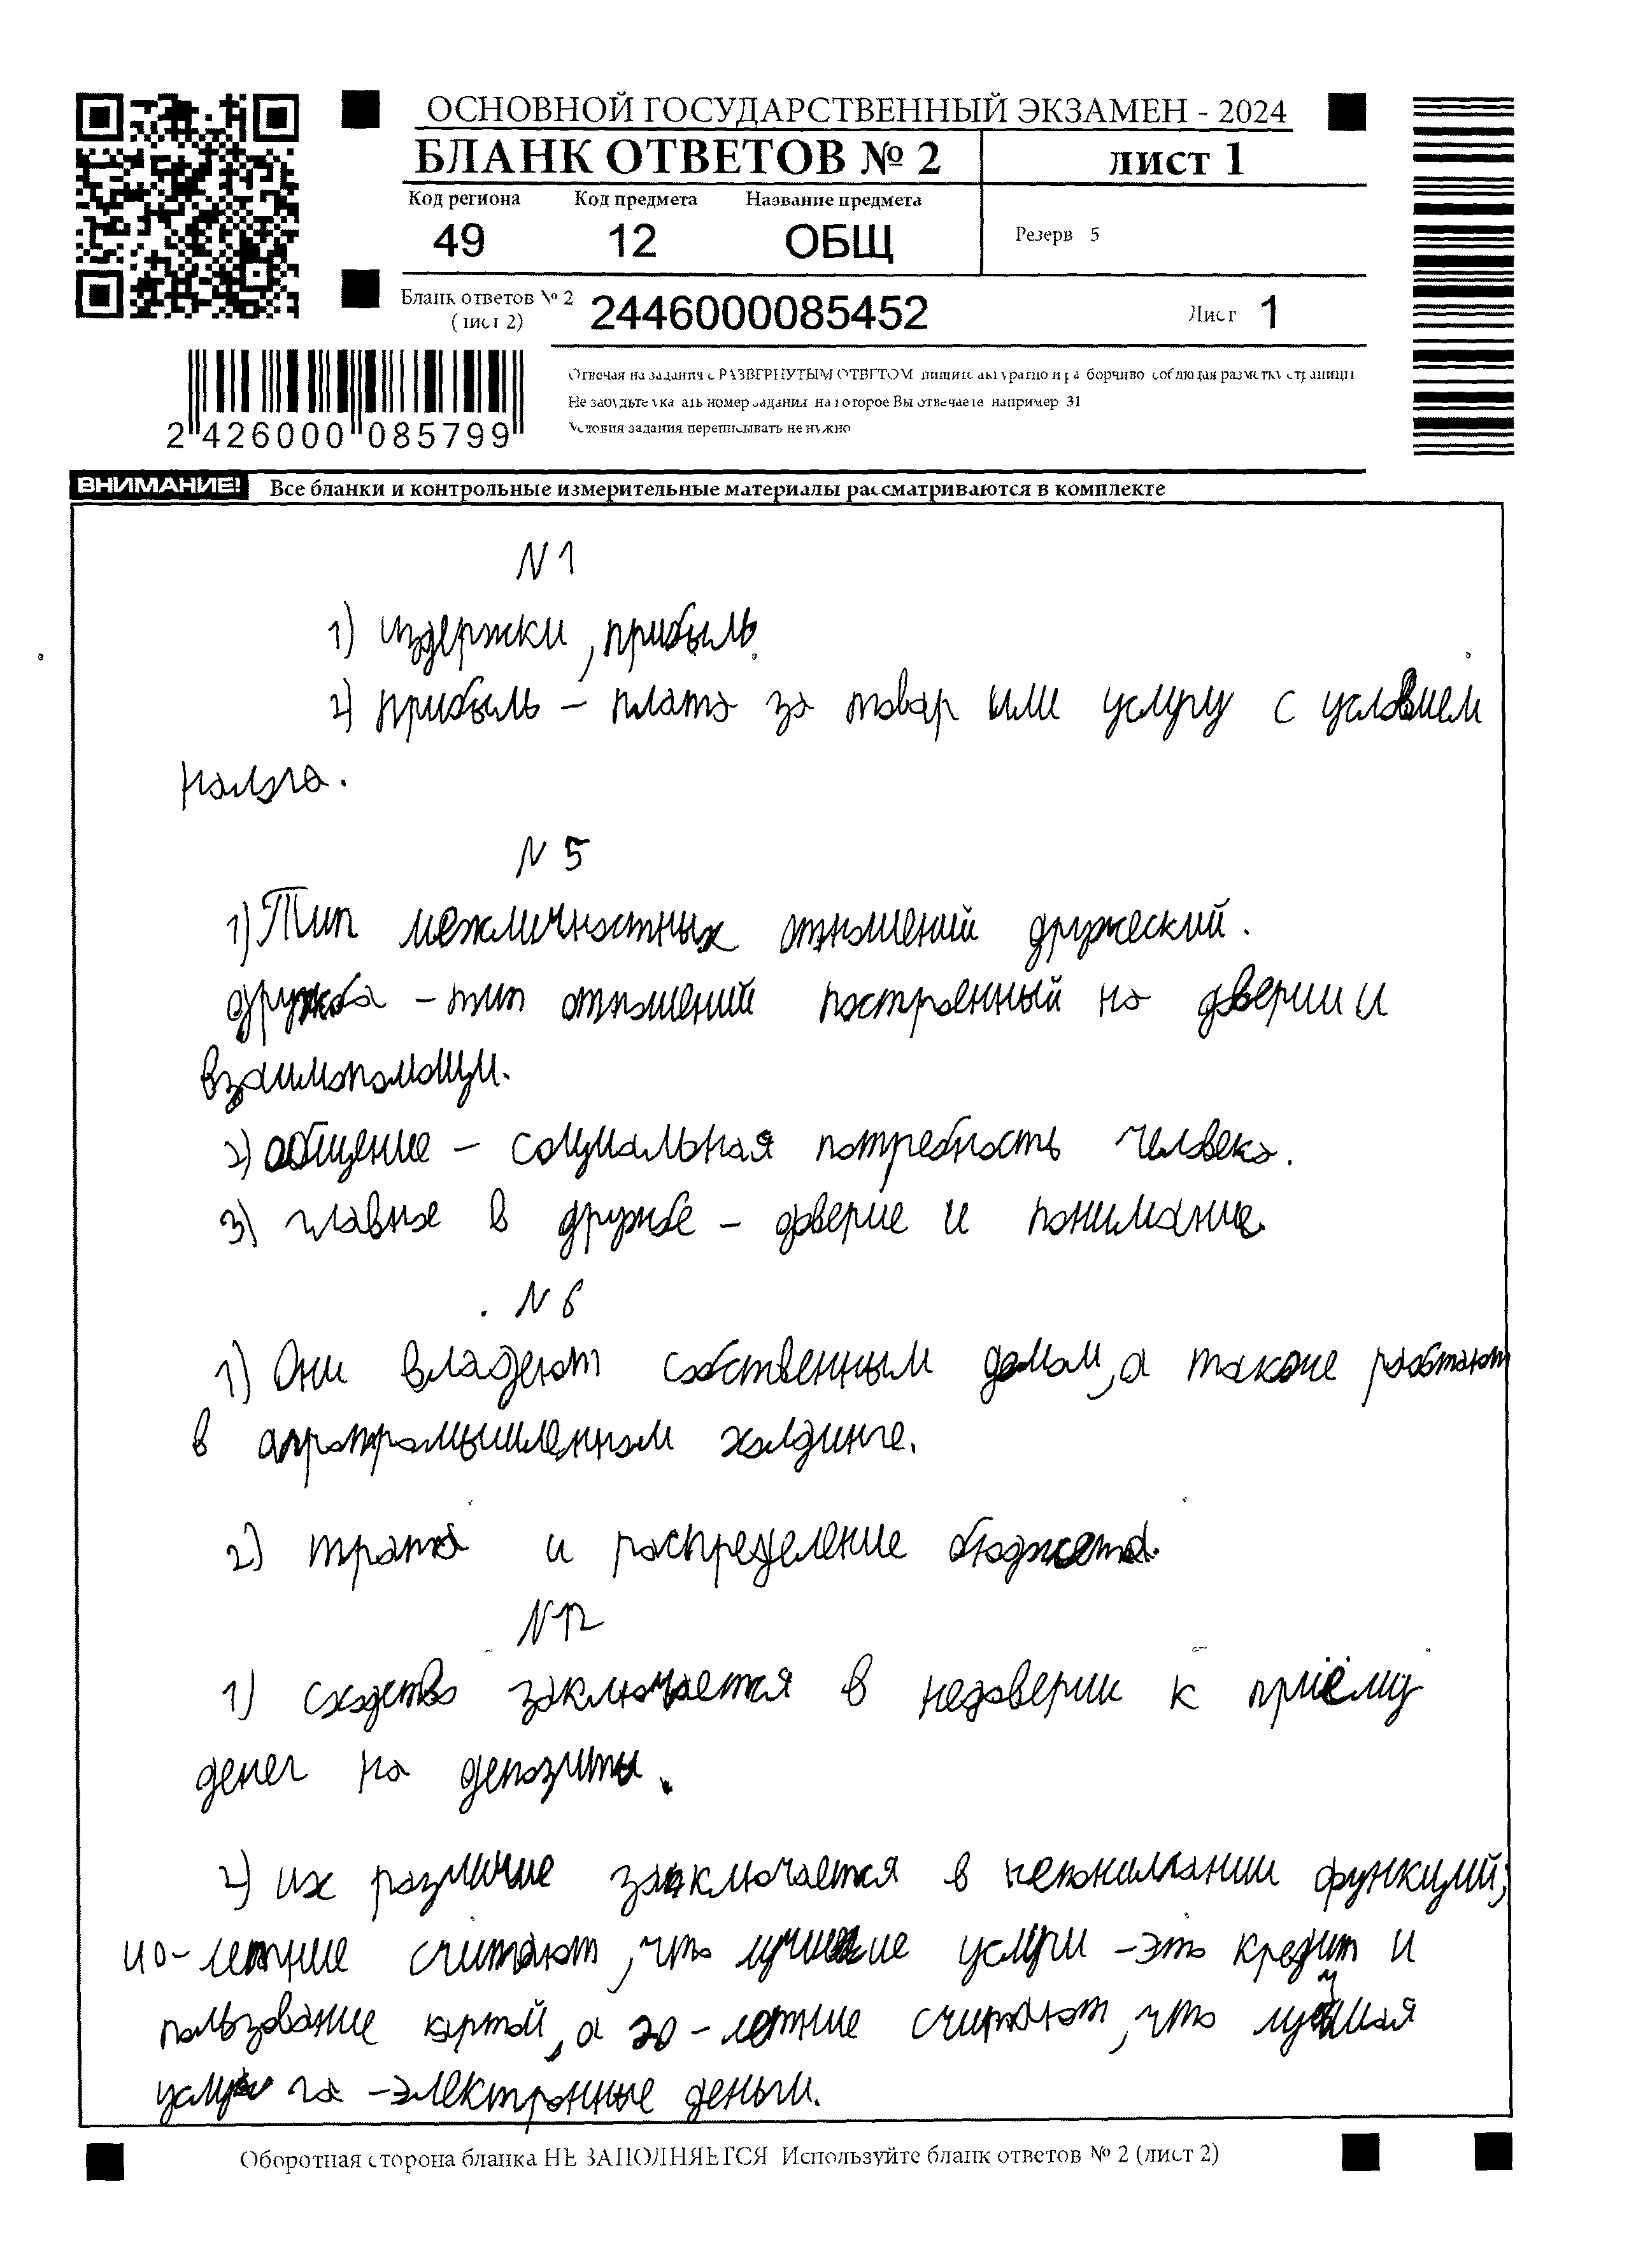 ОСНОВНОЙ ГОСУДАРСТВЕННЫЙ ЭКЗАМЕН - 2024
БЛАНК ОТВЕТОВ № 2
лист 1
Код региона Код предмета Название предмета
49 12 ОБЩ
Резерв 5
Бланк ответов № 2
(лист 2)
2446000085452
Лист 1
2 426000 085799
Отвечая на задания с РАЗВЕРНУТЫМ ОТВЕТОМ пишите аккуратно и разборчиво соблюдая разметку страницы
Не забудьте указать номер задания на которое Вы отвечаете например 31
Условия задания переписывать не нужно
ВНИМАНИЕ! Все бланки и контрольные измерительные материалы рассматриваются в комплекте
N 1
1) издержки, прибыль.
2) прибыль – плата за товар или услугу с условием
налога.
N 5
1) Тип межличностных отношений дружеский.
дружба – тип отношений построенный на доверии и
взаимопомощи.
2) общение – социальная потребность человека.
3) главное в дружбе – доверие и понимание.
N 6
1) Они владеют собственным домом, а также работают
в агропромышленном холдинге.
2) трата и распределение бюджета.
N 12
1) сходство заключается в недоверии к приёму
денег на депозиты.
2) их различие заключается в непонимании функций;
40-летние считают, что лучшие услуги – это кредит и
пользование картой, а 20-летние считают, что лучшая
услуга – электронные деньги.
Оборотная сторона бланка НЕ ЗАПОЛНЯЕТСЯ Используйте бланк ответов № 2 (лист 2)